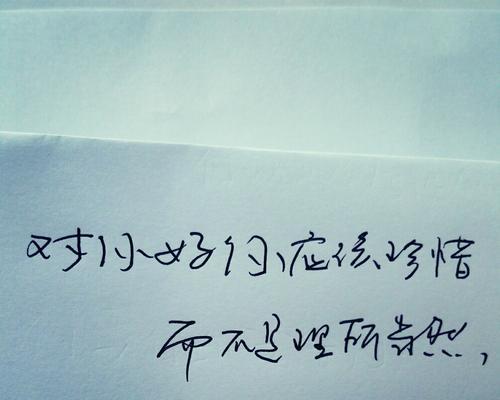 对你好的你,应该珍惜
而不是理所当然,